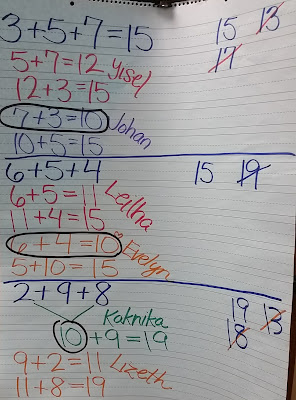 3+5+7=15 15 13
17
5+7=12 Yisel
12+3=15
7+3=10 Johan
10+5=15
6+5+4 15 19
6+5=11 Leilha
11+4=15
6+4=10 Evelyn
5+10=15
2+9+8 19 13
18
Kaknika
10+9=19
9+2=11 Lizeth
11+8=19